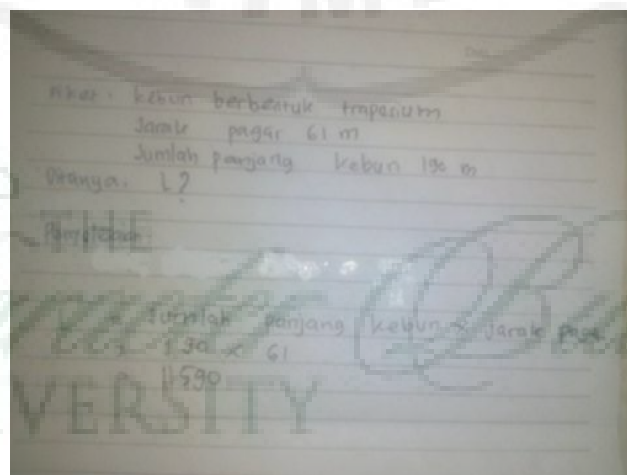 Diket. kebun berbentuk trapesium
Jarak pagar 61 m
Jumlah panjang kebun 190 m
Ditanya. L?
THE
= Jumlah panjang kebun x Jarak
= 190 x 61
11590
VERSITY